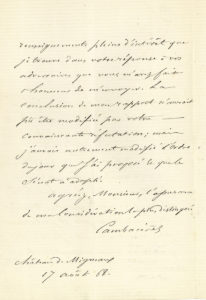 renseignements pleins d'intérêt que
je trouve dans votre réponse à vos
adversaires que vous m'avez fait
l'honneur de m'envoyer. La
conclusion de mon rapport n'aurait
pas été modifiée par votre
convaincante réfutation; mais
j'aurais autrement modifié l'ordre
du jour que j'ai proposé et que le
Sénat a adopté.
Agréez, Monsieur, l'assurance
de ma considération la plus distinguée
Château de
17 août 68.